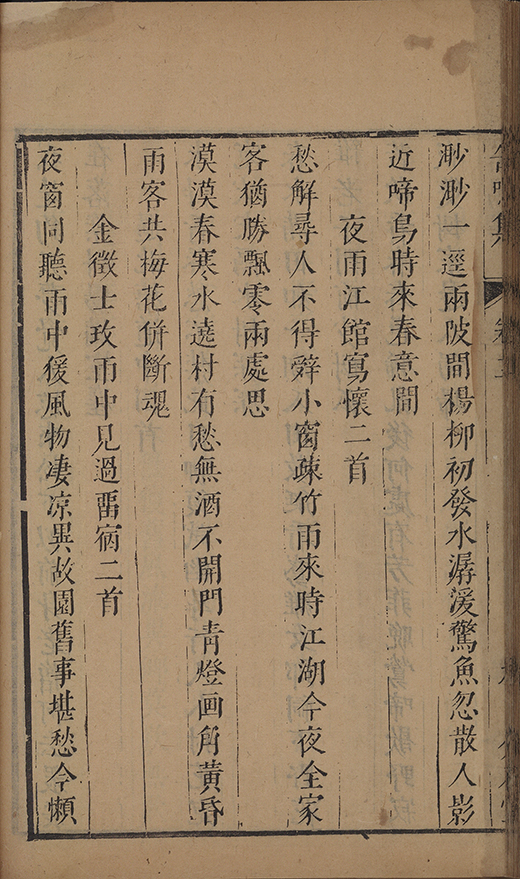 集
渺渺一逕兩陂間楊柳初發水潺湲驚魚忽散人影
近啼鳥時來春意間
夜雨江館寫懷二首
愁解尋人不得辤小窗疎竹雨來時江湖今夜全家
客猶勝飄零兩處思
漠漠春寒水遶村有愁無酒不開門青燈画角黃昏
雨客共梅花併斷魂
金徵士玫雨中見過畱宿二首
夜窗同聽雨中猨風物凄凉異故園舊事堪愁今懶